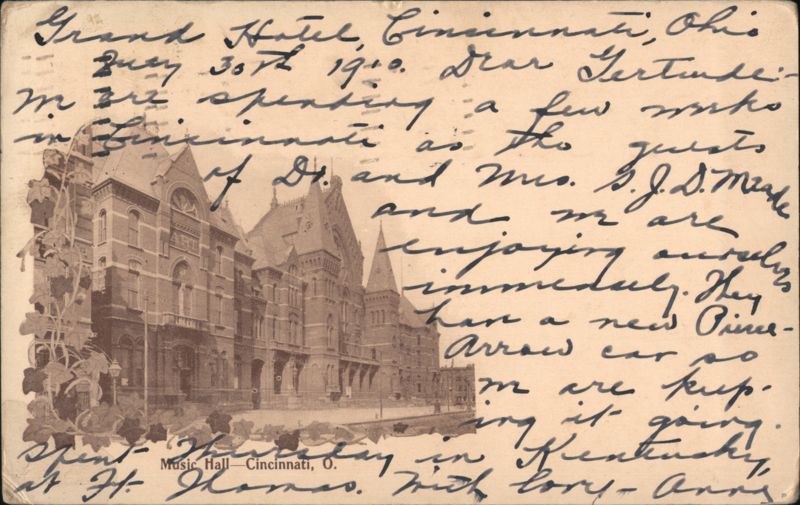 Grand Hotel, Cincinnati, Ohio
July 30th 1910. Dear Gertrude:-
We are spending a few weeks
in Cincinnati as the guests
of Dr. and Mrs. S. J. D. Meade
and we are
enjoying ourselves
immensely. They
have a new Pierce-
Arrow car so
we are keep-
ing it going.
Spent Thursday in Kentucky,
at Ft. Thomas. With love - Anna
Music Hall—Cincinnati, O.